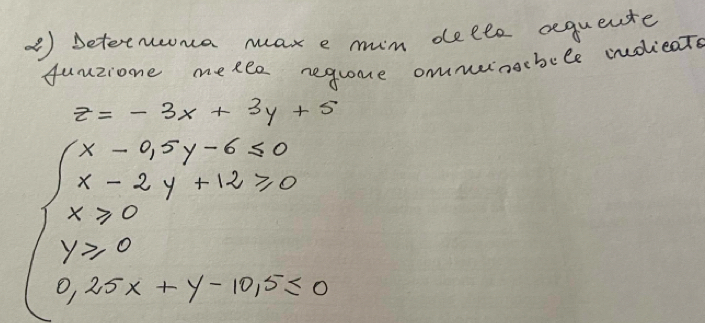 2) Determina max e min della seguente
funzione nella regione ammissibile indicata
z = - 3x + 3y + 5
x - 0,5y - 6 ≤ 0
x - 2y + 12 ≥ 0
x ≥ 0
y ≥ 0
0,25x + y - 10,5 ≤ 0